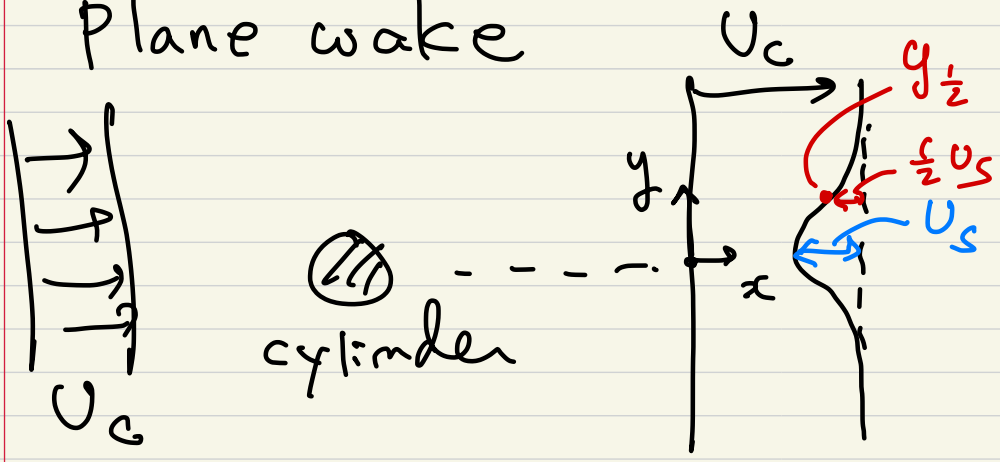 Plane wake
U_c
y_{1/2}
y
1/2 U_s
U_s
x
cylinder
U_c